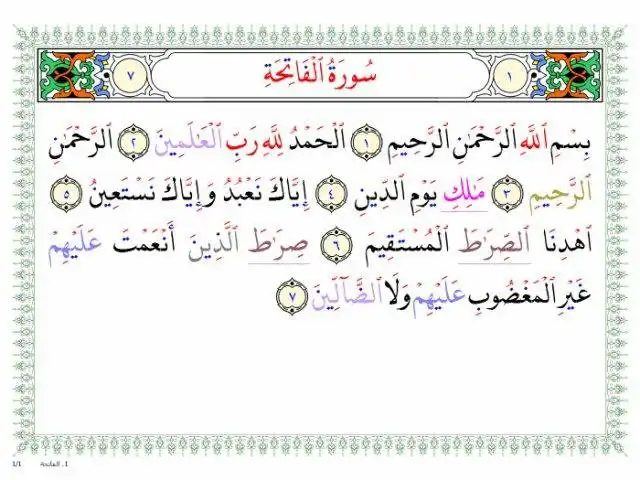 ٧ سُورَةُ ٱلْفَاتِحَةِ ١
بِسْمِ ٱللَّهِ ٱلرَّحْمَٰنِ ٱلرَّحِيمِ ١ ٱلْحَمْدُ لِلَّهِ رَبِّ ٱلْعَٰلَمِينَ ٢ ٱلرَّحْمَٰنِ
ٱلرَّحِيمِ ٣ مَلِكِ يَوْمِ ٱلدِّينِ ٤ إِيَّاكَ نَعْبُدُ وَإِيَّاكَ نَسْتَعِينُ ٥
ٱهْدِنَا ٱلصِّرَٰطَ ٱلْمُسْتَقِيمَ ٦ صِرَٰطَ ٱلَّذِينَ أَنْعَمْتَ عَلَيْهِمْ
غَيْرِ ٱلْمَغْضُوبِ عَلَيْهِمْ وَلَا ٱلضَّآلِّينَ ٧
1/1 1 . الفاتحة